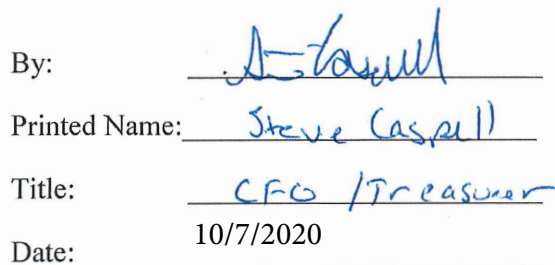 By:
Printed Name: Steve Caspell
Title: CFO / Treasurer
Date: 10/7/2020